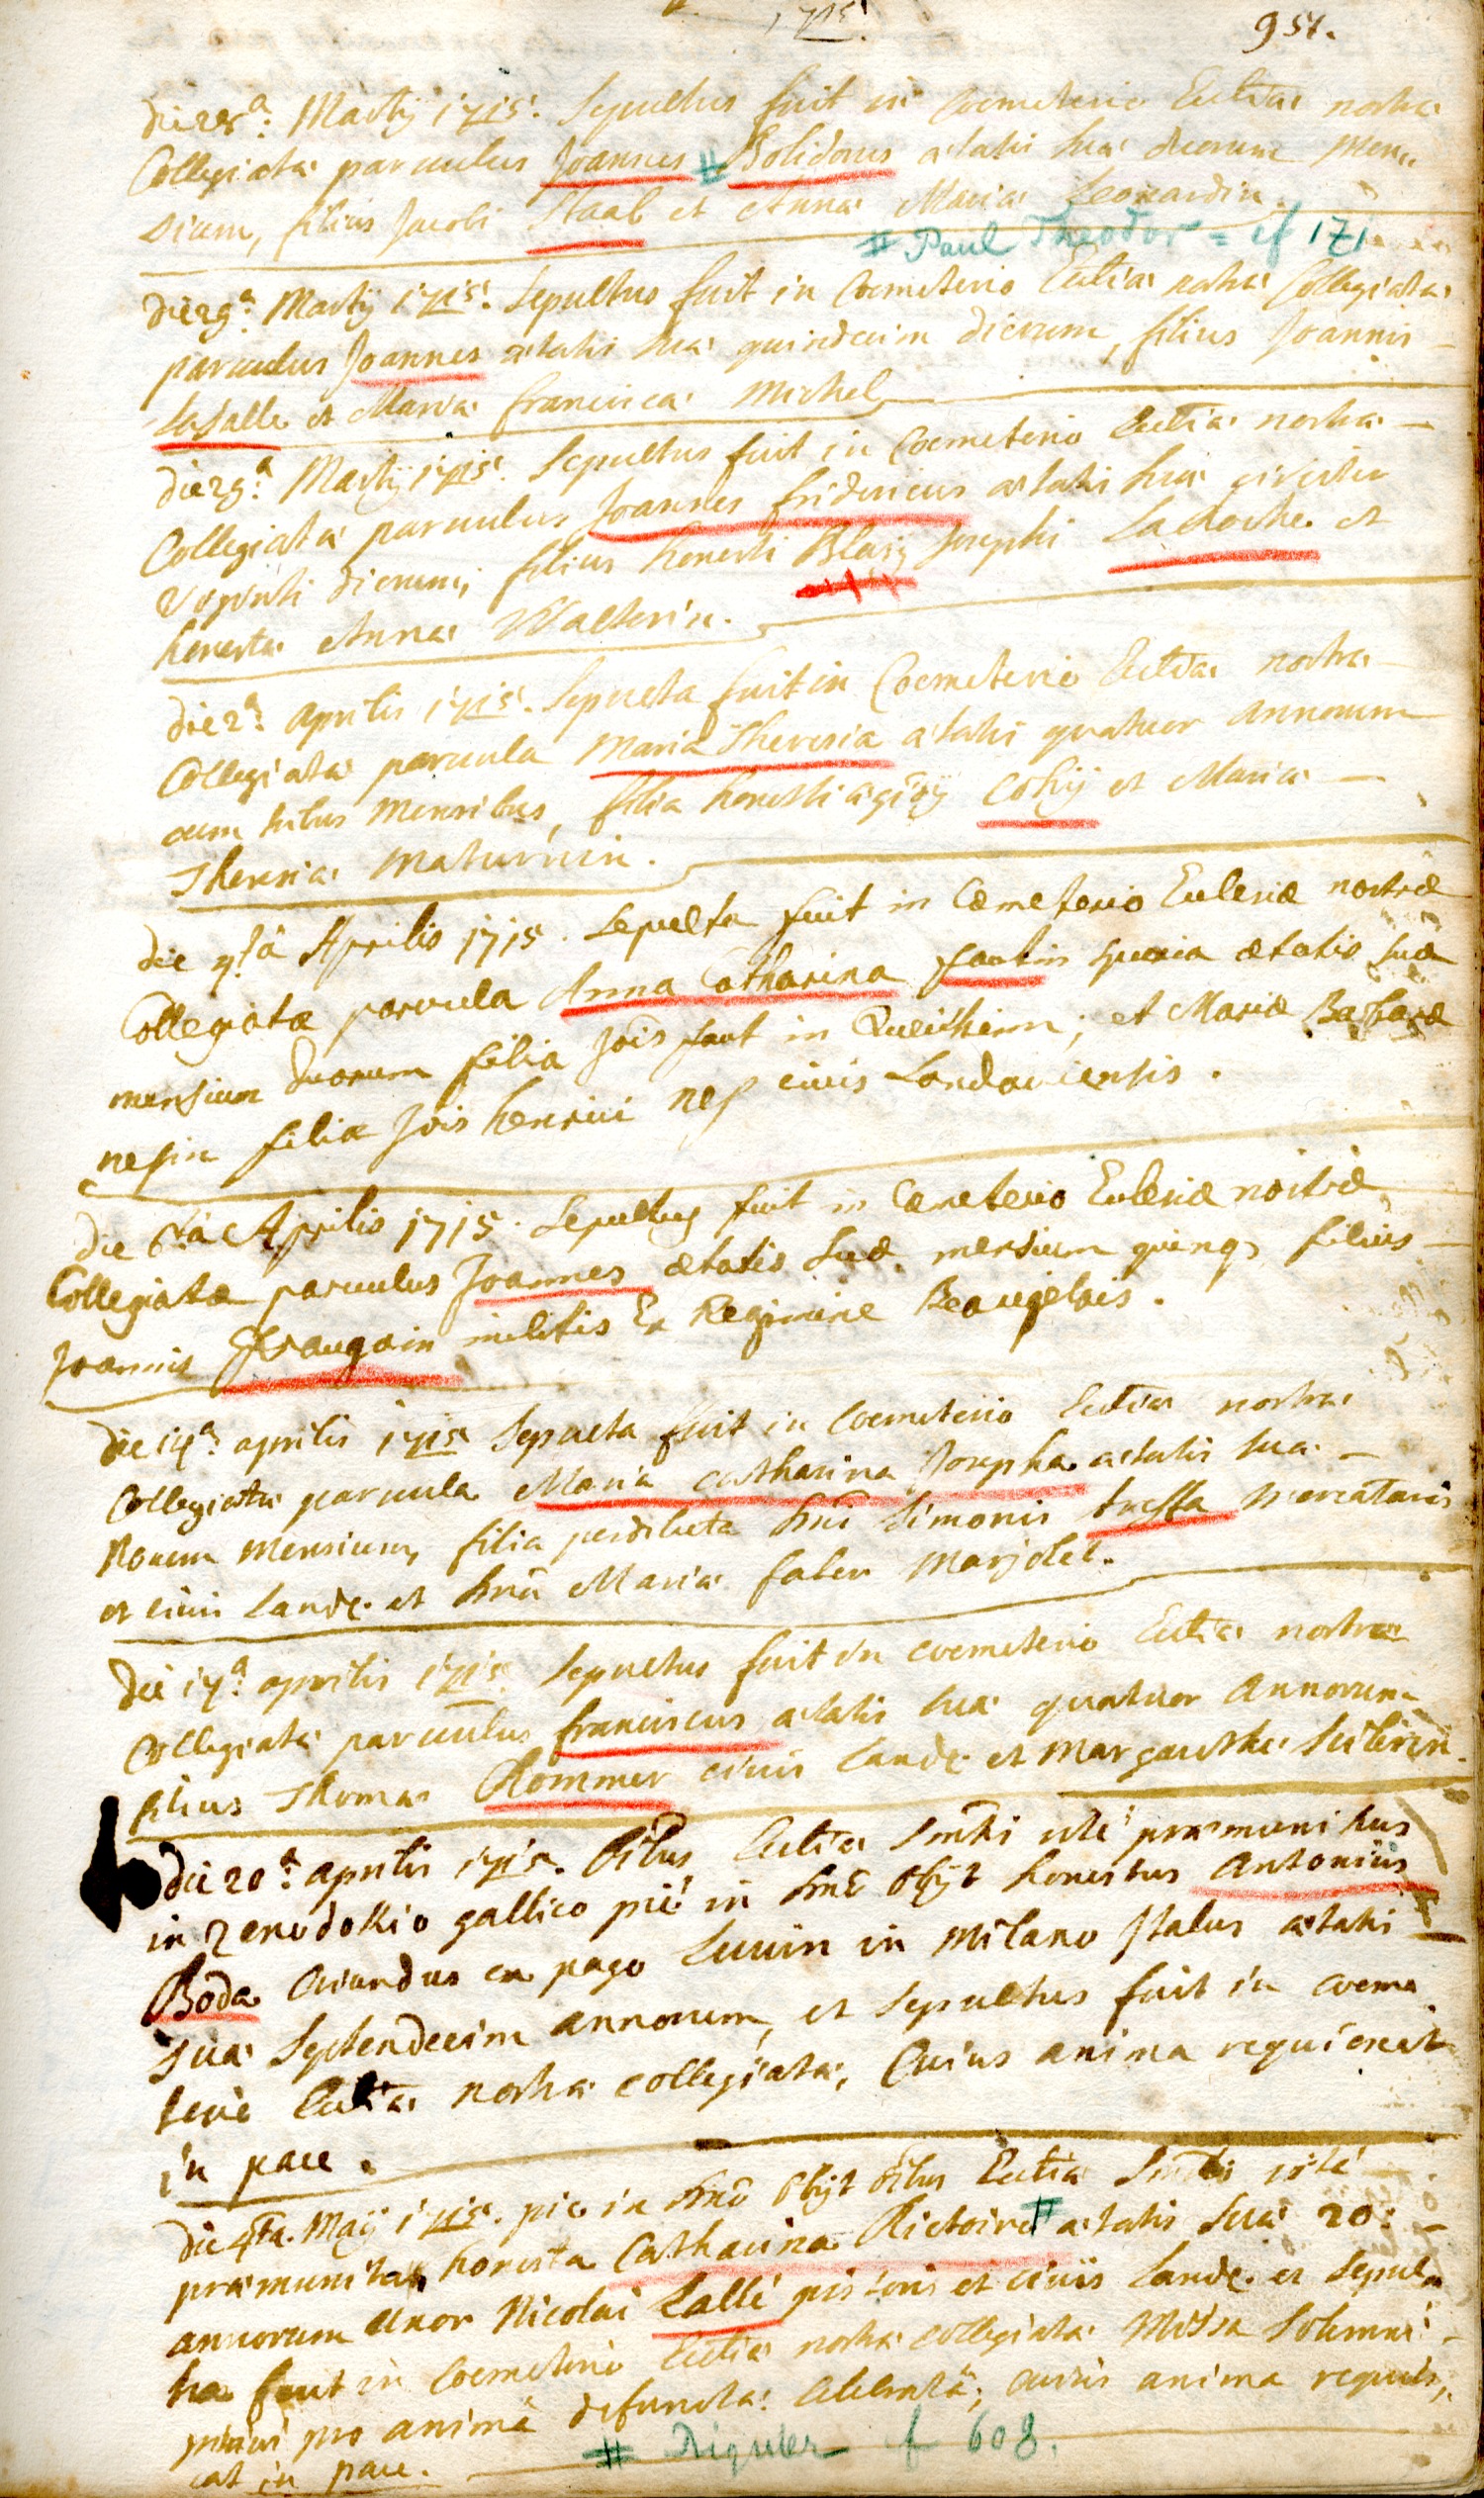 1715.
951.
die 28ª: Martij 1715. Sepultus fuit in Coemeterio Eccliæ nostræ
Collegiatæ parvulus Joannes # Bolidorus ætatis suæ duorum men-
sium, filius Jacobi Staal et Annæ Mariæ Leonardin.
# Paul Theodor = cf 171
die 29ª Martij 1715. Sepultus fuit in Coemeterio Eccliæ nostræ Collegiatæ
parvulus Joannes ætatis suæ quindecim dierum, filius Joannis
LaSalle et Mariæ franciscæ Michel
die 29ª Martij 1715. Sepultus fuit in Coemeterio Eccliæ nostræ
Collegiatæ parvulus Joannes fridericus ætatis suæ circiter
viginti dierum, filius honesti Blasij Josephi LaRoche et
honestæ Annæ Walterin.
die 2ª Aprilis 1715. Sepulta fuit in Coemeterio Eccliæ nostræ
Collegiatæ parvula Maria Theresia ætatis quatuor annorum
cum tribus mensibus, filia honesti Cohij et Mariæ
Theresiæ Maturnin.
die 4tâ Aprilis 1715. Sepulta fuit in Cæmeterio Ecclesiæ nostræ
Collegiatæ parvula Anna Catharina fautin spuria ætatis suæ
mensium duorum filia Jois faut in Queichheim; et Mariæ Barbaræ
nessin filiæ Jois henrici ness civis Landaviensis.
die 6tâ Aprilis 1715. Sepultus fuit in Cæmeterio Ecclesiæ nostræ
Collegiatæ parvulus Joannes ætatis suæ mensium quinq, filius
Joannis militis Ex Regimine Beaujelois.
die 14ª aprilis 1715 Sepulta fuit in Coemeterio Eccliæ nostræ
Collegiatæ parvula Maria Catharina Josepha ætatis suæ
novem mensium, filia perdilecta Dni Simonis tressa mercatoris
et civis Landę. et Dnæ Mariæ faber Marjolet.
die 17ª aprilis 1715. Sepultus fuit in coemeterio Eccliæ nostræ
Collegiatæ parvulus franciscus ætatis suæ quatuor annorum
filius Thomæ Rommer civis Landę. et Margarethæ Suterin
die 20ª aprilis 1715. Ritus Eccliæ Smtis ritè præmunitus
in Zenodokio gallico piè in Dno obijt honestus Antonius
Boda oriundus ex pago Luvin in Milano Italus ætatis
suæ Septendecim annorum, et sepultus fuit in coeme
terio Eccliæ nostræ collegiatæ, Cuius anima requiescat
in pace.
die 4ta. Maij 1715. pie in Dno obijt Ritus Eccliæ Smtis ritè
præmunita honesta Catharina Rictoire # ætatis suæ 20:
annorum uxor Nicolai Lallé pistoris et civis Landę. et sepul
ta fuit in Coemeterio Eccliæ nostræ collegiatæ Missa Solemni
priùs pro anima defunctæ Celebratâ; cuius anima requies,
cat in pace.
# Riquler f 608.